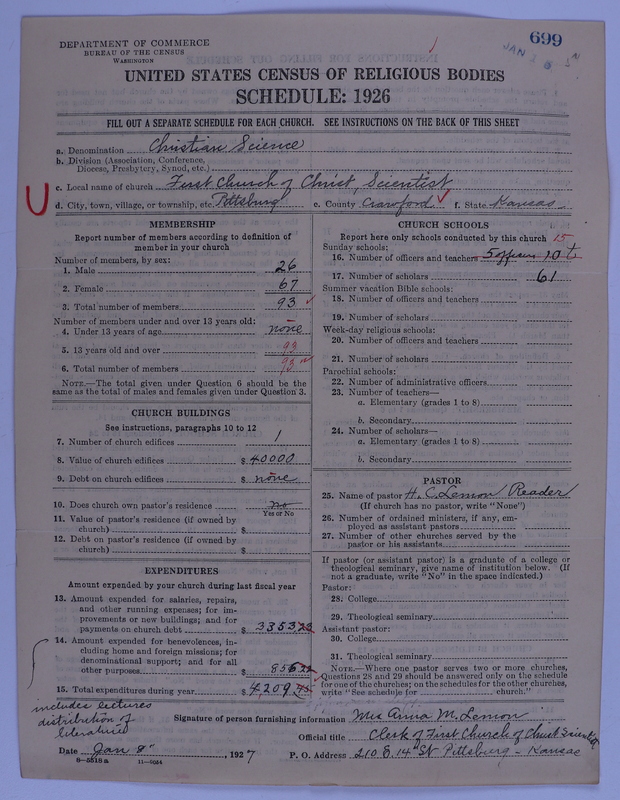 699
DEPARTMENT OF COMMERCE
BUREAU OF THE CENSUS
WASHINGTON
JAN
UNITED STATES CENSUS OF RELIGIOUS BODIES
SCHEDULE: 1926
FILL OUT A SEPARATE SCHEDULE FOR EACH CHURCH. SEE INSTRUCTIONS ON THE BACK OF THIS SHEET
a. Denomination Christian Science
b. Division (Association, Conference, Diocese, Presbytery, Synod, etc.)
c. Local name of church First Church of Christ, Scientist
d. City, town, village, or township, etc. Pittsburg e. County Crawford f. State Kansas
MEMBERSHIP
Report number of members according to definition of
member in your church
Number of members, by sex:
1. Male 26
2. Female 67
3. Total number of members 93
Number of members under and over 13 years old:
4. Under 13 years of age none
5. 13 years old and over 93
6. Total number of members 93
NOTE.—The total given under Question 6 should be the
same as the total of males and females given under Question 3.
CHURCH BUILDINGS
See instructions, paragraphs 10 to 12
7. Number of church edifices 1
8. Value of church edifices $ 40000
9. Debt on church edifices $ none
10. Does church own pastor's residence no
Yes or No
11. Value of pastor's residence (if owned by
church) $
12. Debt on pastor's residence (if owned by
church) $
EXPENDITURES
Amount expended by your church during last fiscal year
13. Amount expended for salaries, repairs,
and other running expenses; for im-
provements or new buildings; and for
payments on church debt $ 3353
14. Amount expended for benevolences, in-
cluding home and foreign missions; for
denominational support; and for all
other purposes $ 856
15. Total expenditures during year $ 4209
includes lectures
distribution of
literature
CHURCH SCHOOLS
Report here only schools conducted by this church
15
Sunday schools:
16. Number of officers and teachers 5 officers 10 t
17. Number of scholars 61
Summer vacation Bible schools:
18. Number of officers and teachers
19. Number of scholars
Week-day religious schools:
20. Number of officers and teachers
21. Number of scholars
Parochial schools:
22. Number of administrative officers
23. Number of teachers—
a. Elementary (grades 1 to 8)
b. Secondary
24. Number of scholars—
a. Elementary (grades 1 to 8)
b. Secondary
PASTOR
25. Name of pastor H. C. Lemon Reader
(If church has no pastor, write "None")
26. Number of ordained ministers, if any, em-
ployed as assistant pastors
27. Number of other churches served by the
pastor or his assistants
If pastor (or assistant pastor) is a graduate of a college or
theological seminary, give name of institution below. (If
not a graduate, write "No" in the space indicated.)
Pastor:
28. College
29. Theological seminary
Assistant pastor:
30. College
31. Theological seminary
NOTE.—Where one pastor serves two or more churches,
Questions 28 and 29 should be answered only on the schedule
for one of the churches; on the schedules for the other churches,
write "See schedule for church."
Signature of person furnishing information Mrs Anna M. Lemon
Official title Clerk of First Church of Christ Scientist
Date Jan 8", 1927
P. O. Address 210 E. 14 St Pittsburg - Kansas
8—5518a 11—9054